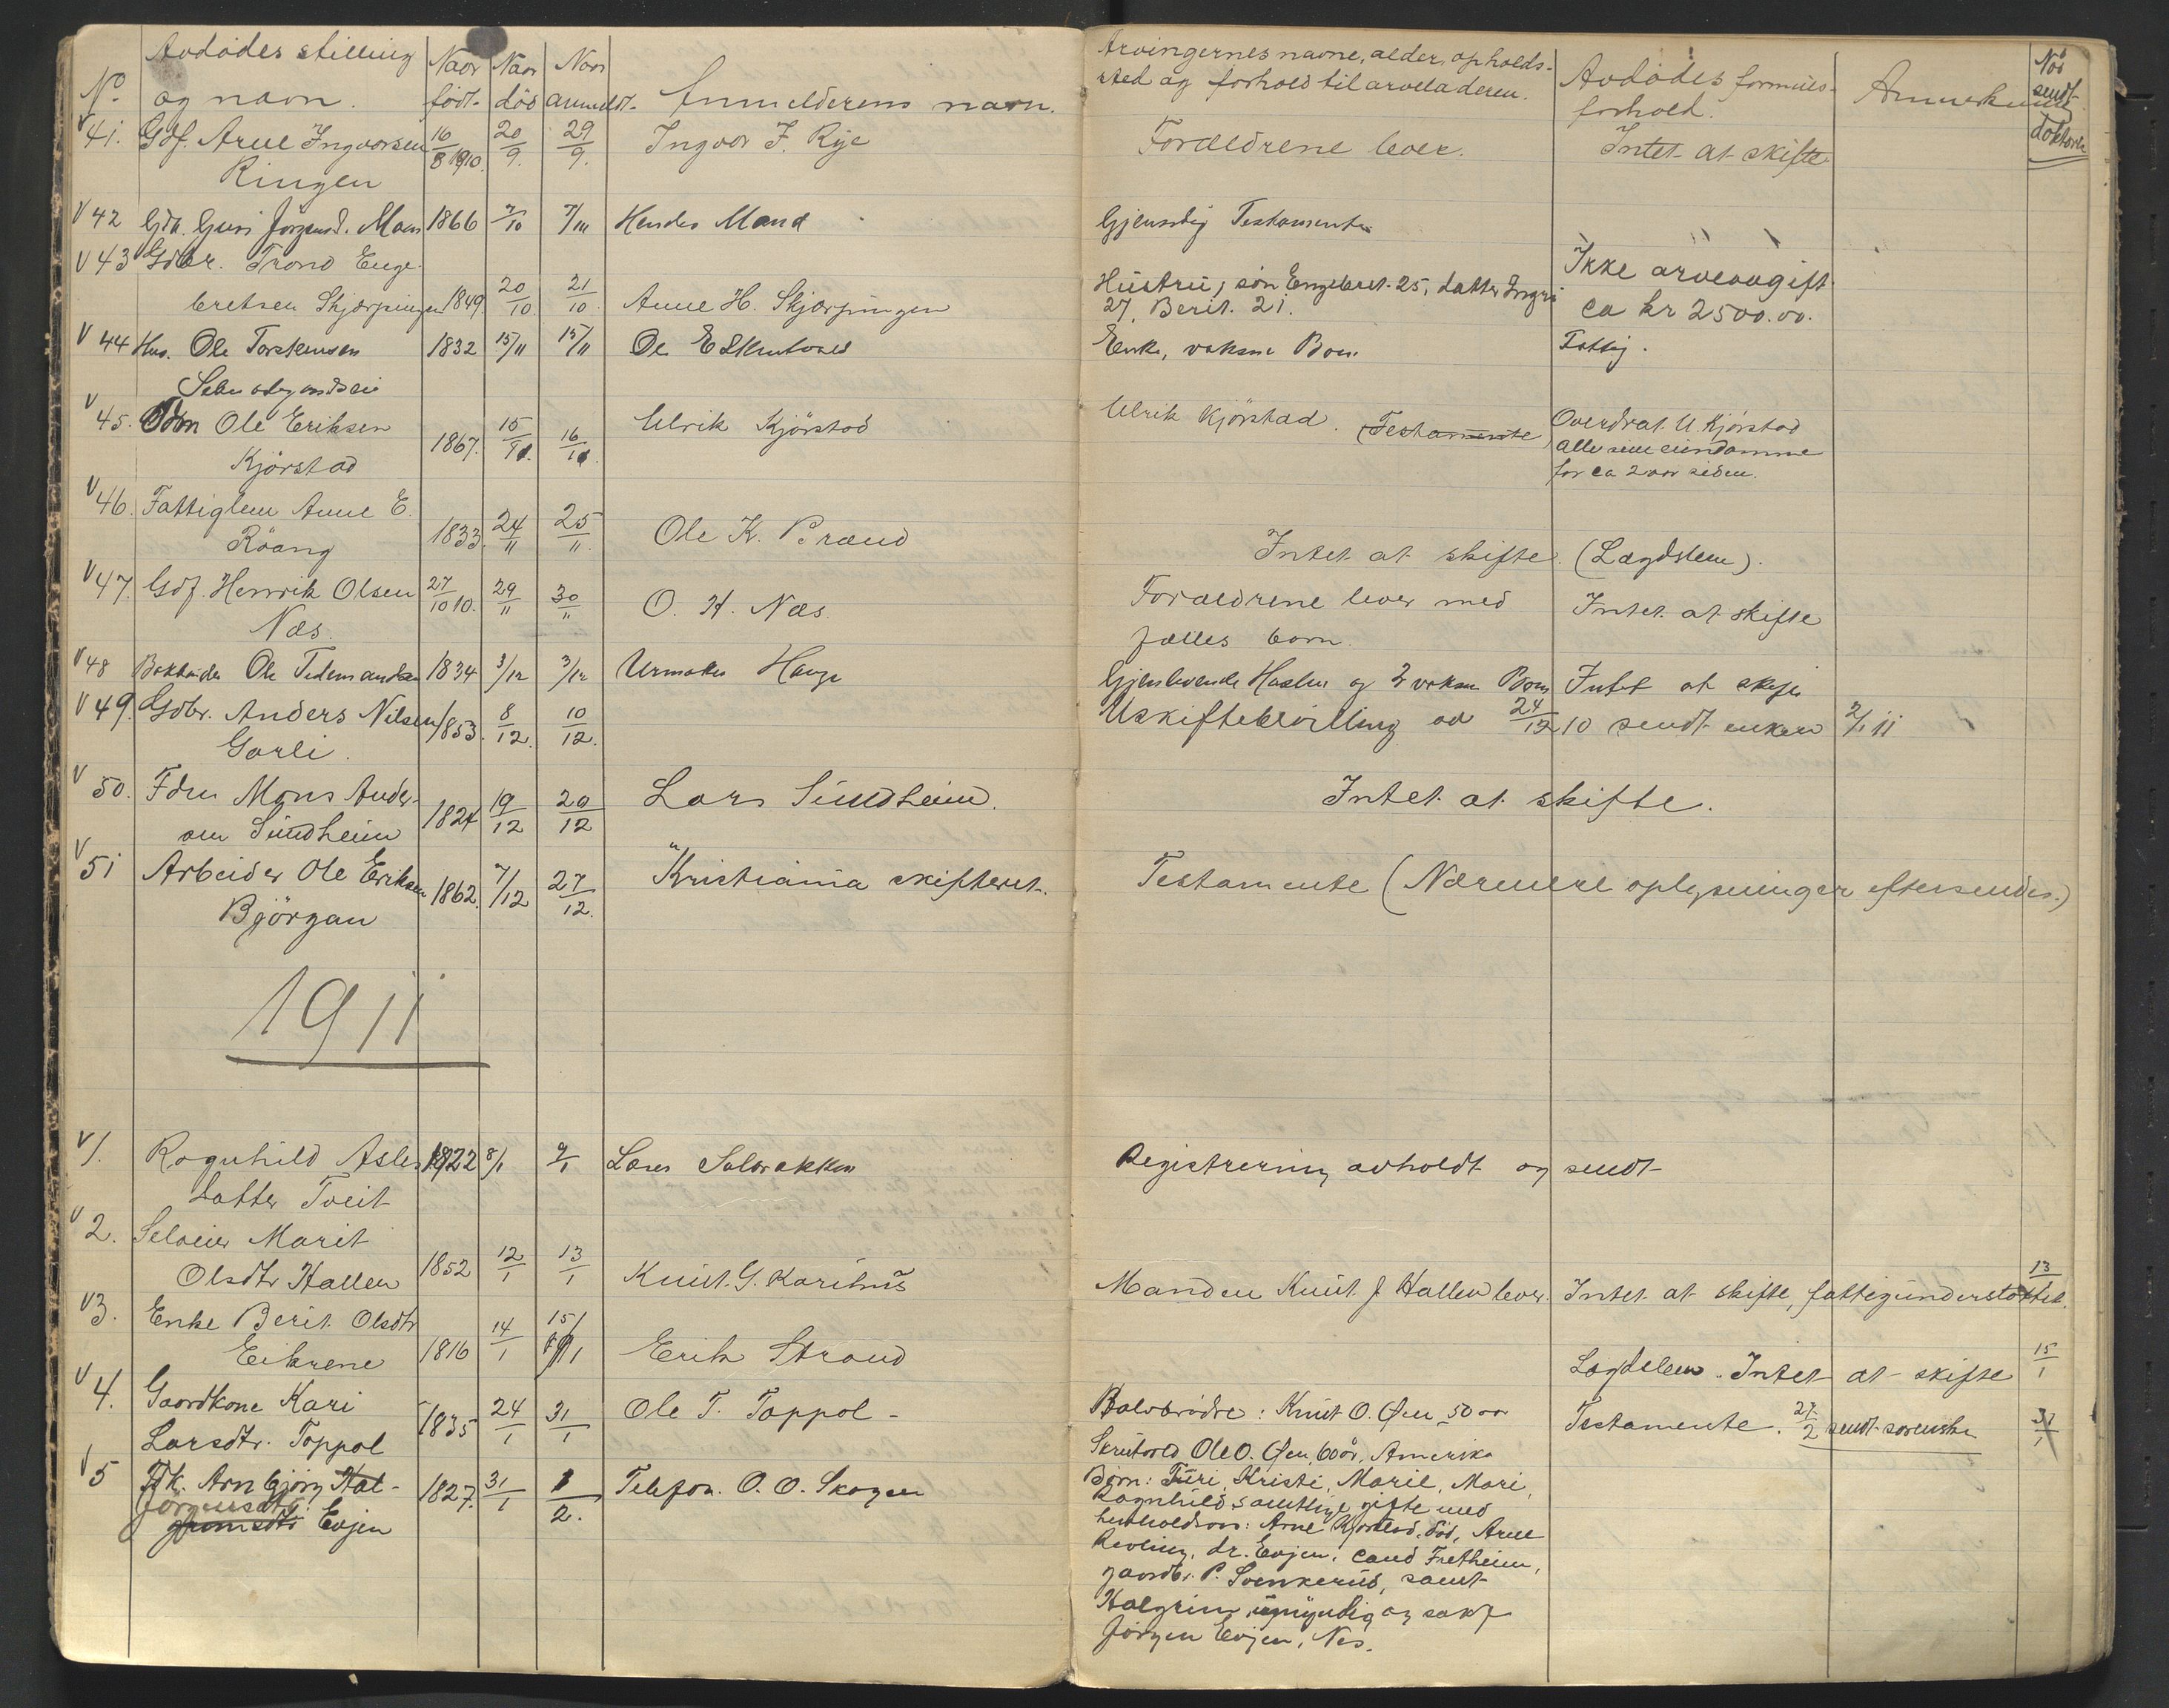 No. Avdødes stilling og navn. Naar født. Naar død Naar anmeldt. Anmelderens navn. Arvingernes navne, alder, opholds-
sted og forhold til arveladeren. Avdødes formues-
forhold. Naar sendt doktoren
41. Gdf. Arne Ingvorsen 16/8 1910. 20/9. 29/9. Ingvor J. Rye Forældrene lever. Intet at skifte
Ringen
42 Guri Jørgensd. Moen 1866 7/10 7/10 Hendes Mand Gjensidig Testamente
43 Gdbr. Trond Enge-
bretsen Skjørpingen 1849 20/10. 21/10. Anne H. Skjørpingen Hustru, søn Engebret 25, datter Ingri
27, Berit 21. Ikke arveavgift
ca kr 2500.00.
44 Hus. Ole Torstensen 1832 15/11 15/11 Ole E Skutvold Enke, voksne Børn Fattig.
45. Ole Eriksen
Kjørstad 1867. 15/11. 16/11. Ulrik Kjørstad Ulrik Kjørstad. (Testamente) Overdrat U. Kjørstad
alle sine eiendomme
for ca 2 aar siden.
46. Fattiglem Anne E.
Røang 1833. 24/11 25/11. Ole K. Braud Intet at skifte. (Lægdslem).
47. Gdf. Henrik Olsen 27/10 10. 29/11 30/11 O. H. Næs. Forældrene lever med Intet at skifte
Næs. fælles barn.
48 Bokbinder Ole Tidemandsen 1834 3/12 3/12 Urmaker Hauge Gjenlevende Hustru og 3 voksne Børn Intet at skifte
49. Gdbr. Anders Nilsen 1853. 8/12. 10/12. Uskiftebevilling av 24/12 10 sendt enken 2/1 11
Garli.
50. Fdm Mons Ander-
sen Sundheim 1824 19/12 20/12 Lars Sundheim. Intet at skifte.
51 Arbeider Ole Eriksen 1862. 7/12 27/12. Kristiania skifteret. Testamente (Nærmere oplysninger eftersendes.)
Bjørgan
1911
1. Ragnhild Asles- 1822 8/1 9/1 Lars Solbrekken Registrering avholdt og sendt
datter Tveit
2. Selveier Marit
Olsdtr Hallen 1852 12/1 13/1 Knut G. Karihus Manden Knut J Hallen lever. Intet at skifte, fattigunderstøttet. 13/1
3. Enke Berit Olsdtr
Eikrene 1816 14/1 15/1 Erik Strand Lægdslem. Intet at skifte 15/1
4. Gaardkone Kari
Larsdtr. Toppol 1835 24/1 31/1 Ole T. Toppol Halvbrødre: Knut O. Øen 50 aar
Skrutvold Ole O. Øen, 60 år, Amerika Testamente. 27/2 sendt sorenskr 31/1
5 Fdk. Arnbjørg Hal-
Jørgensdtr.
grimsdtr Evjen 1827. 31/1 1/2. Telefon. O. O. Skogen Børn: Turi, Kristi, Marit, Mari,
Ragnhild, samtlige gifte med
henholdsvis: Arne Kjørstad, død, Arne
Revling, dr. Evjen, cand Fretheim,
gaardbr. P. Svenkerud, samt
Halgrim, umyndig og sakf
Jørgen Evjen, Nes.